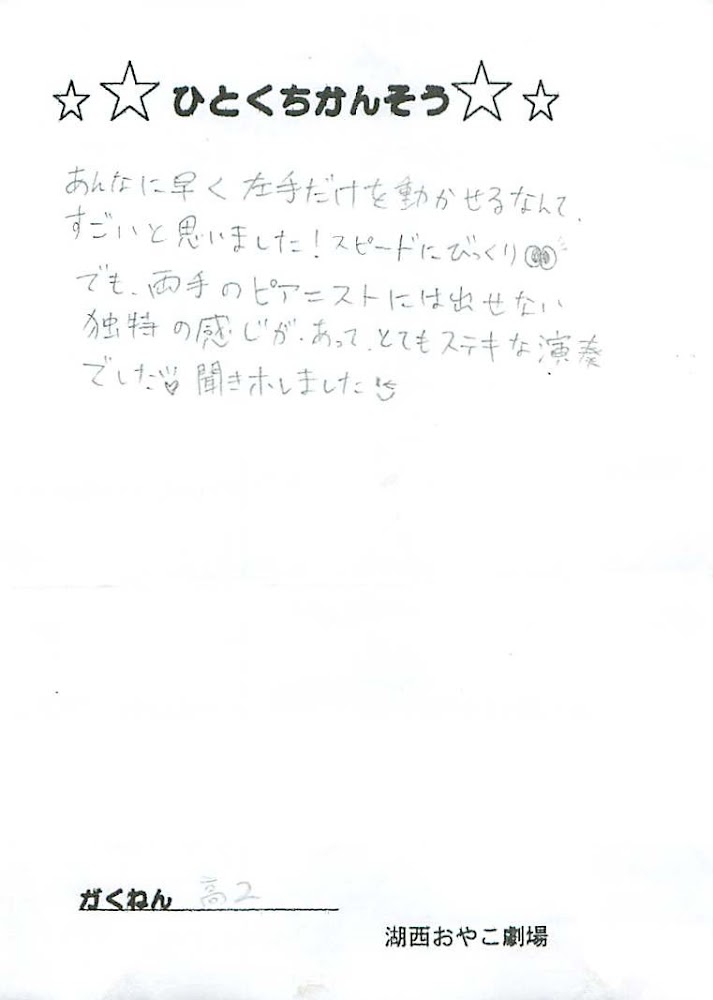 ☆☆ひとくちかんそう☆☆
あんなに早く左手だけを動かせるなんて、
すごいと思いました!スピードにびっくり
でも、両手のピアニストには出せない
独特の感じが、あって、とてもステキな演奏
でした♡聞きホレました
がくねん 高2
湖西おやこ劇場